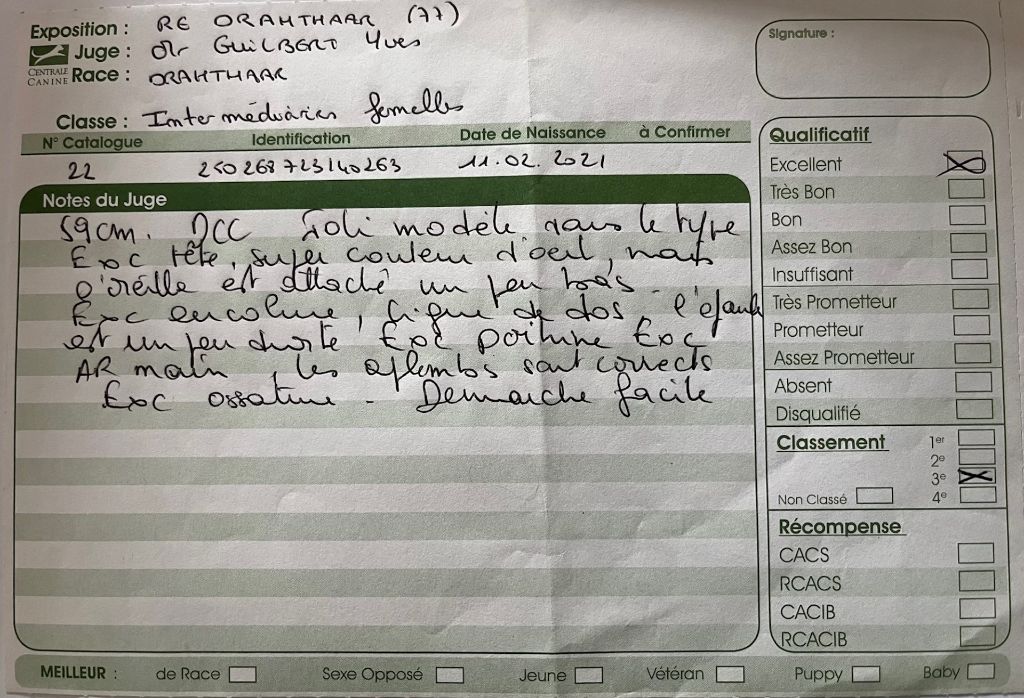 Exposition : RE DRAHTHAAR (77)
CENTRALE CANINE
Juge : Mr GUILBERT Yves
Race : DRAHTHAAR
Classe : Intermédiaires femelles
N° Catalogue Identification Date de Naissance à Confirmer
22 250268723140263 11.02.2021
Notes du Juge
59cm. DCC Joli modèle dans le type
Exc tête, super couleur d'oeil, mais
o'reille est attaché un peu bas.
Exc encolure, ligne de dos, l'épaule
est un peu droite Exc poitrine Exc
AR main, les aplombs sont corrects
Exc ossature - Demarche facile
Signature :
Qualificatif
Excellent
Très Bon
Bon
Assez Bon
Insuffisant
Très Prometteur
Prometteur
Assez Prometteur
Absent
Disqualifié
Classement 1er
2e
3e
Non Classé 4e
Récompense
CACS
RCACS
CACIB
RCACIB
MEILLEUR : de Race Sexe Opposé Jeune Vétéran Puppy Baby